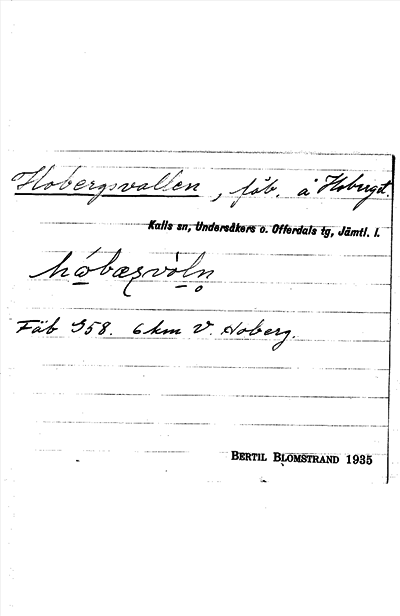 Hobergsvallen, fäb. å Hoberget.
Kalls sn, Undersåkers o. Offerdals tg, Jämtl. l.
Fäb 958. 6 km V. Hoberg.
BERTIL BLOMSTRAND 1935